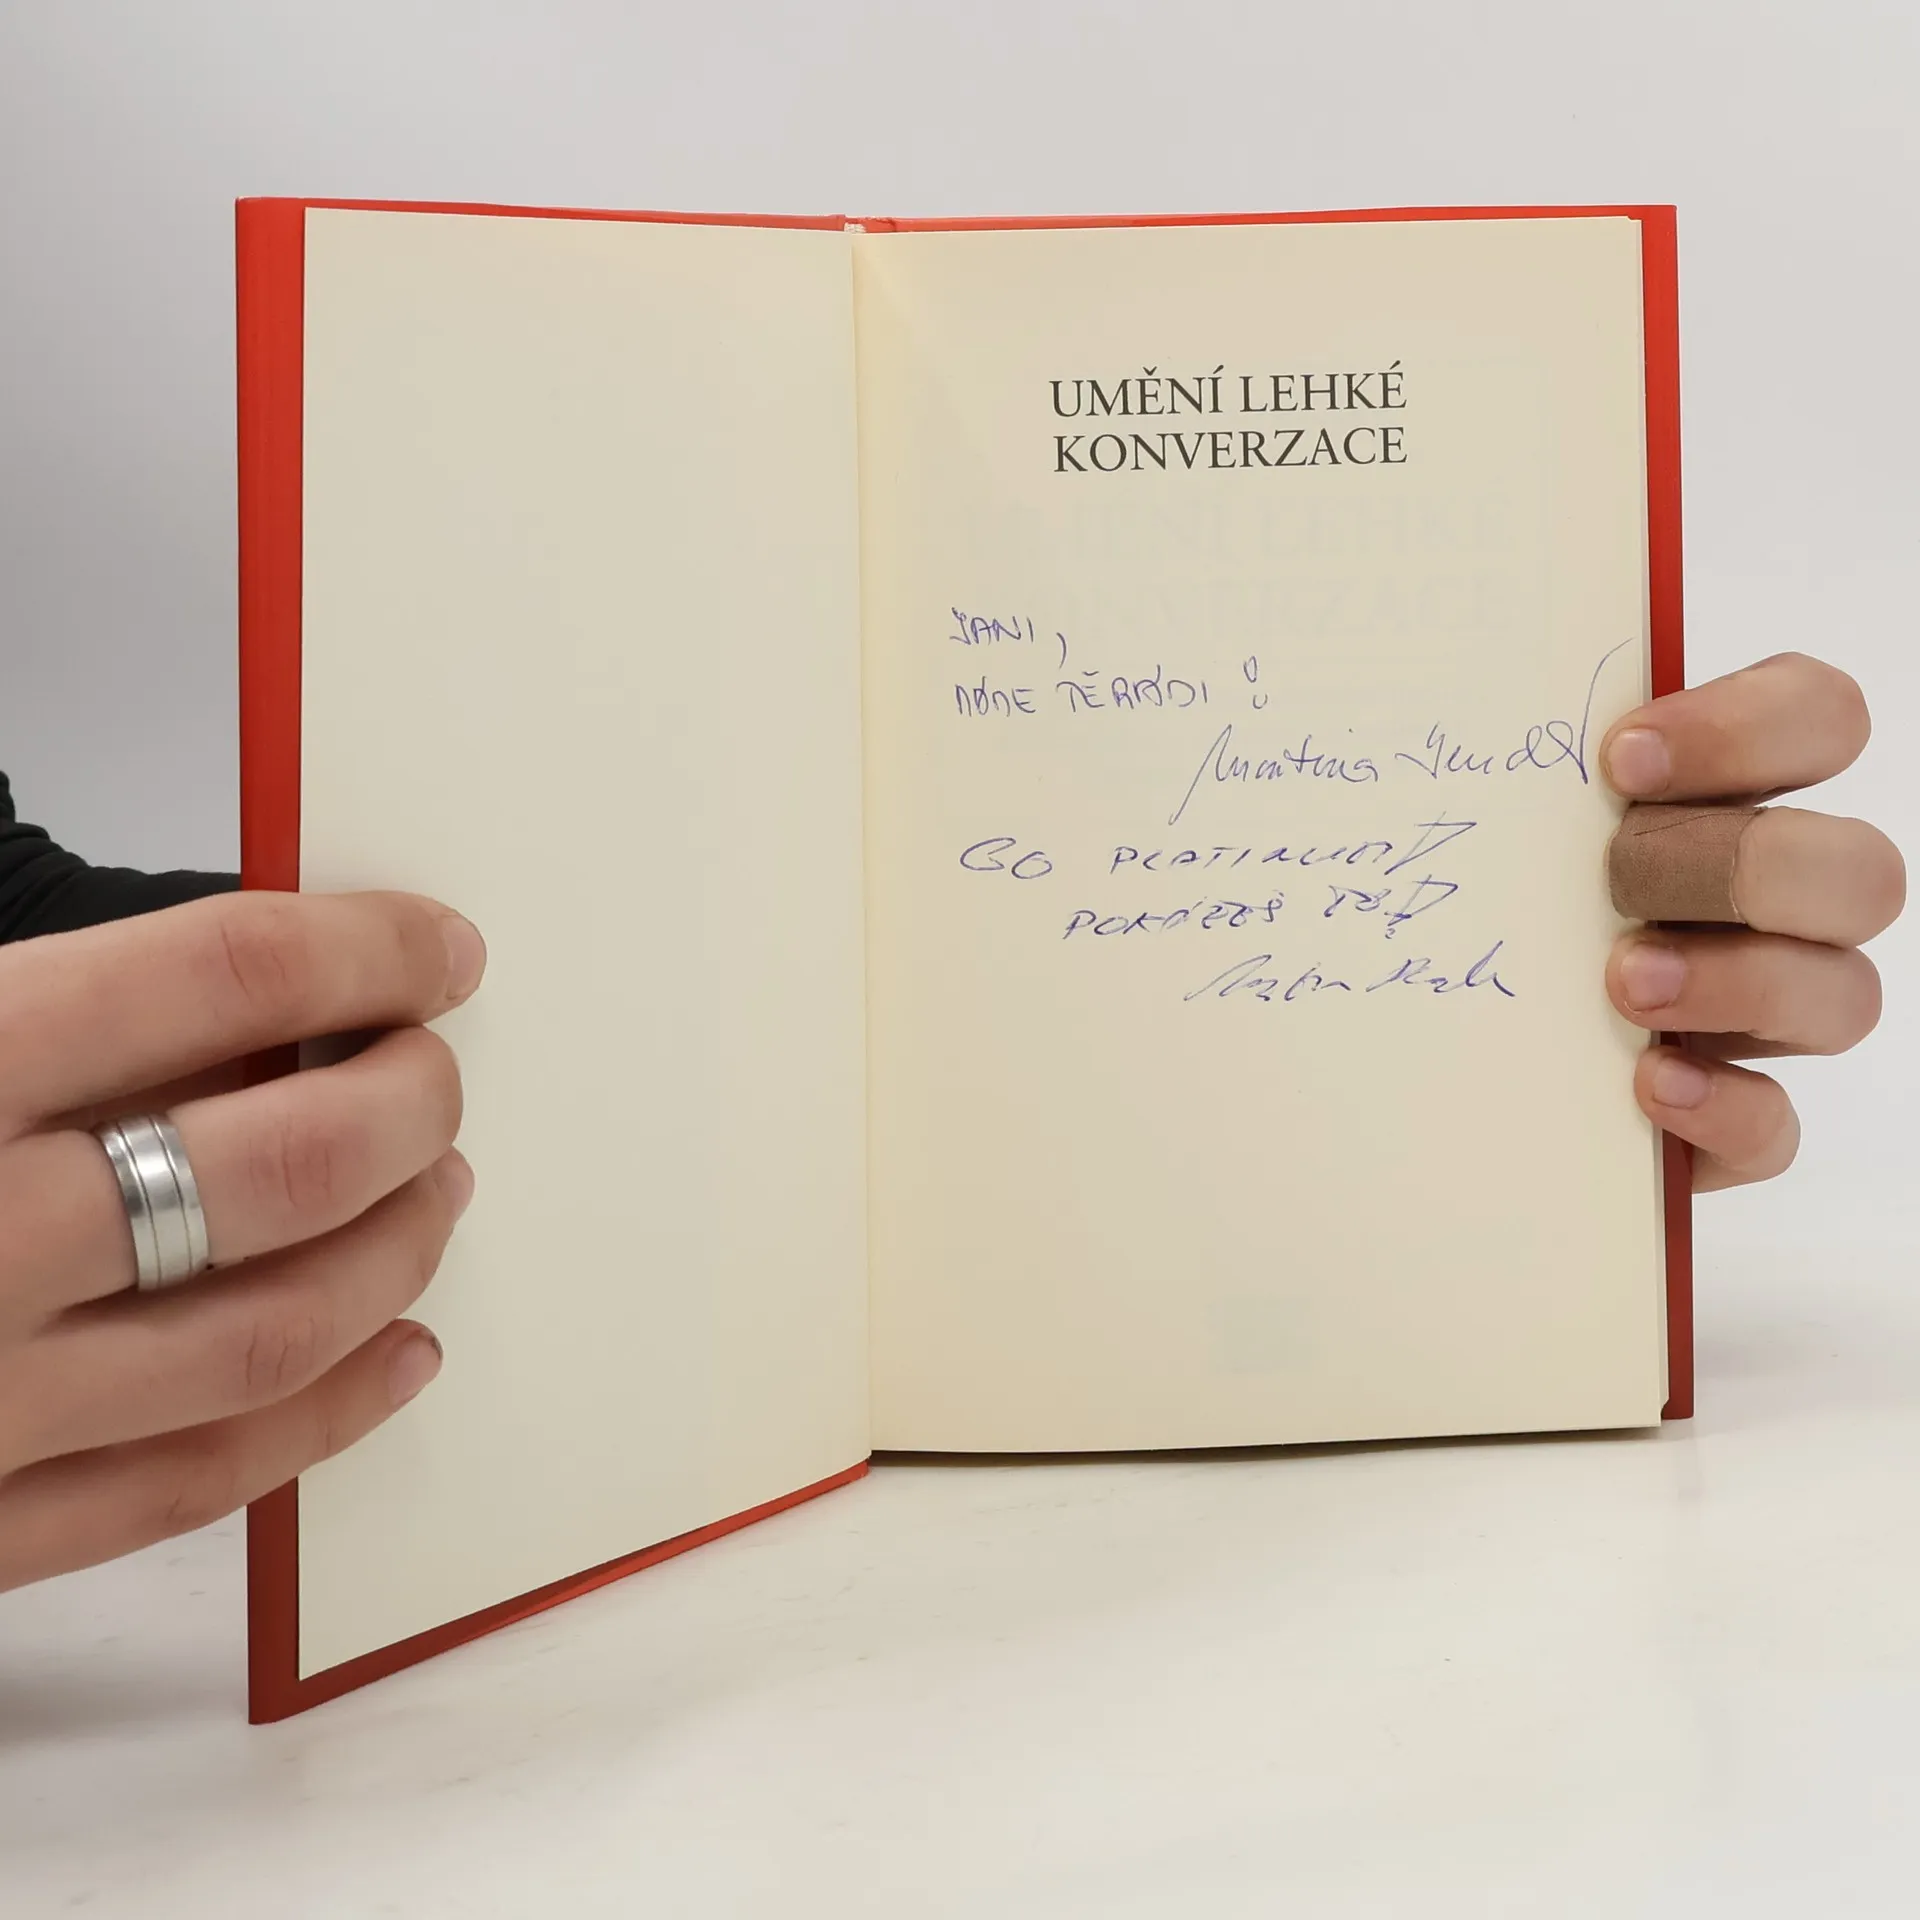 UMĚNÍ LEHKÉ
KONVERZACE
JANI,
MÁME TĚ RÁDI!
Martina
GO PLATINUM!
DOKÁŽEŠ TO!